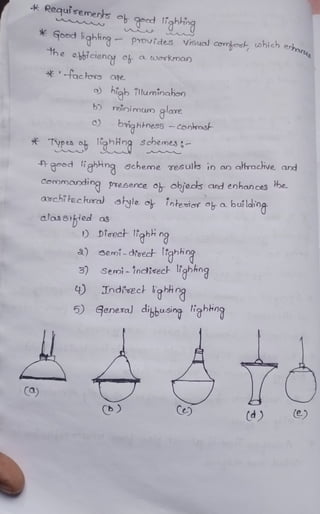 * Requirements of good lighting
* Good lighting - provides visual comfort, which enhances
the efficiency of a workman
* factors are
a) high illumination
b) minimum glare
c) brightness - contrast
* Types of lighting schemes :-
A good lighting scheme results in an attractive and
commanding presence of objects and enhances the
architectural style of interior of a building.
classified as
1) Direct lighting
2) semi-direct lighting
3) Semi-indirect lighting
4) Indirect lighting
5) General diffusing lighting
(a)
(b)
(c)
(d)
(e)